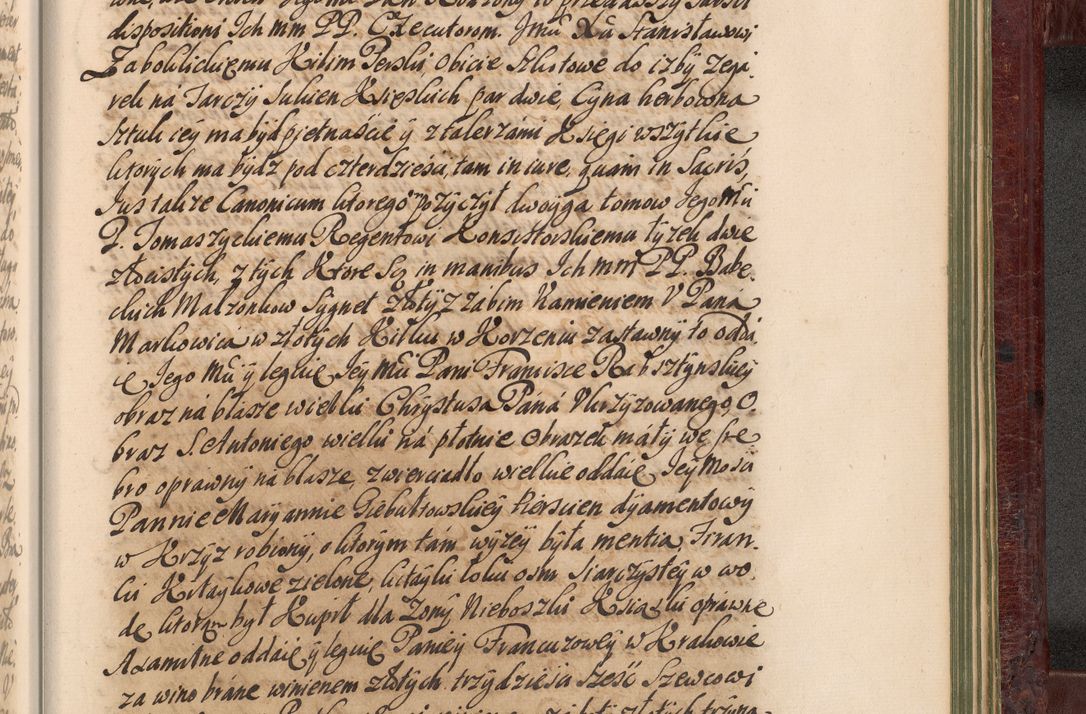 dispositioni Ich mm PP. Executorom. Jmu Xu Stanisławowi
Zaboklickiemu Kilim Perski, obicie Szlistowe do izby zega-
rek na Tarczy Sukien Księskich par dwie, Cyna herbowna
Sztuk iey ma bydz piętnaście y z talerzami Księgi wszytkie
ktorych ma bydz pod czterdzieści, tam in iure, quam in Sacris,
Jus także Canonicum ktorego pozyczył dwoyga tomow Jego Mu
P. Tomaszyckiemu Regentowi Konsistorskiemu łyzek dwie
złocistych, z tych Ktore Są in manibus Ich mm PP. Babe-
ckich Małzonkow Sygnet złoty z zabim Kamieniem V Pana
Markowica w złotych Kilku w Korzeniu zastawny to odda-
ię Jego Mu y leguię Jey Mu Pani Francisce Rabsztynskiey
obraz na blasze wielki Chrystusa Pana Vkrzyzowanego, O-
braz S. Antoniego wielki na płotnie Obrazek mały we sre-
bro oprawny na blasze, zwierciadło wielkie oddaię Jey Mości
Pannie Maryannie Giebułtowskiey Pierscien dyamentowy
w Krzyz robiony, o ktorym tam wyzey była mentia. Firan-
ki Kitaykowe zielone, kitayki łokci osm Siarczystey w wo-
dę ktorą był Kupił dla Zony Nieboszki Ksiązki oprawne
Axamitne oddaię y leguię Paniey Francuzowey w Krakowie
za wino brane winienem złotych trzydzieści sześć Szewcowi